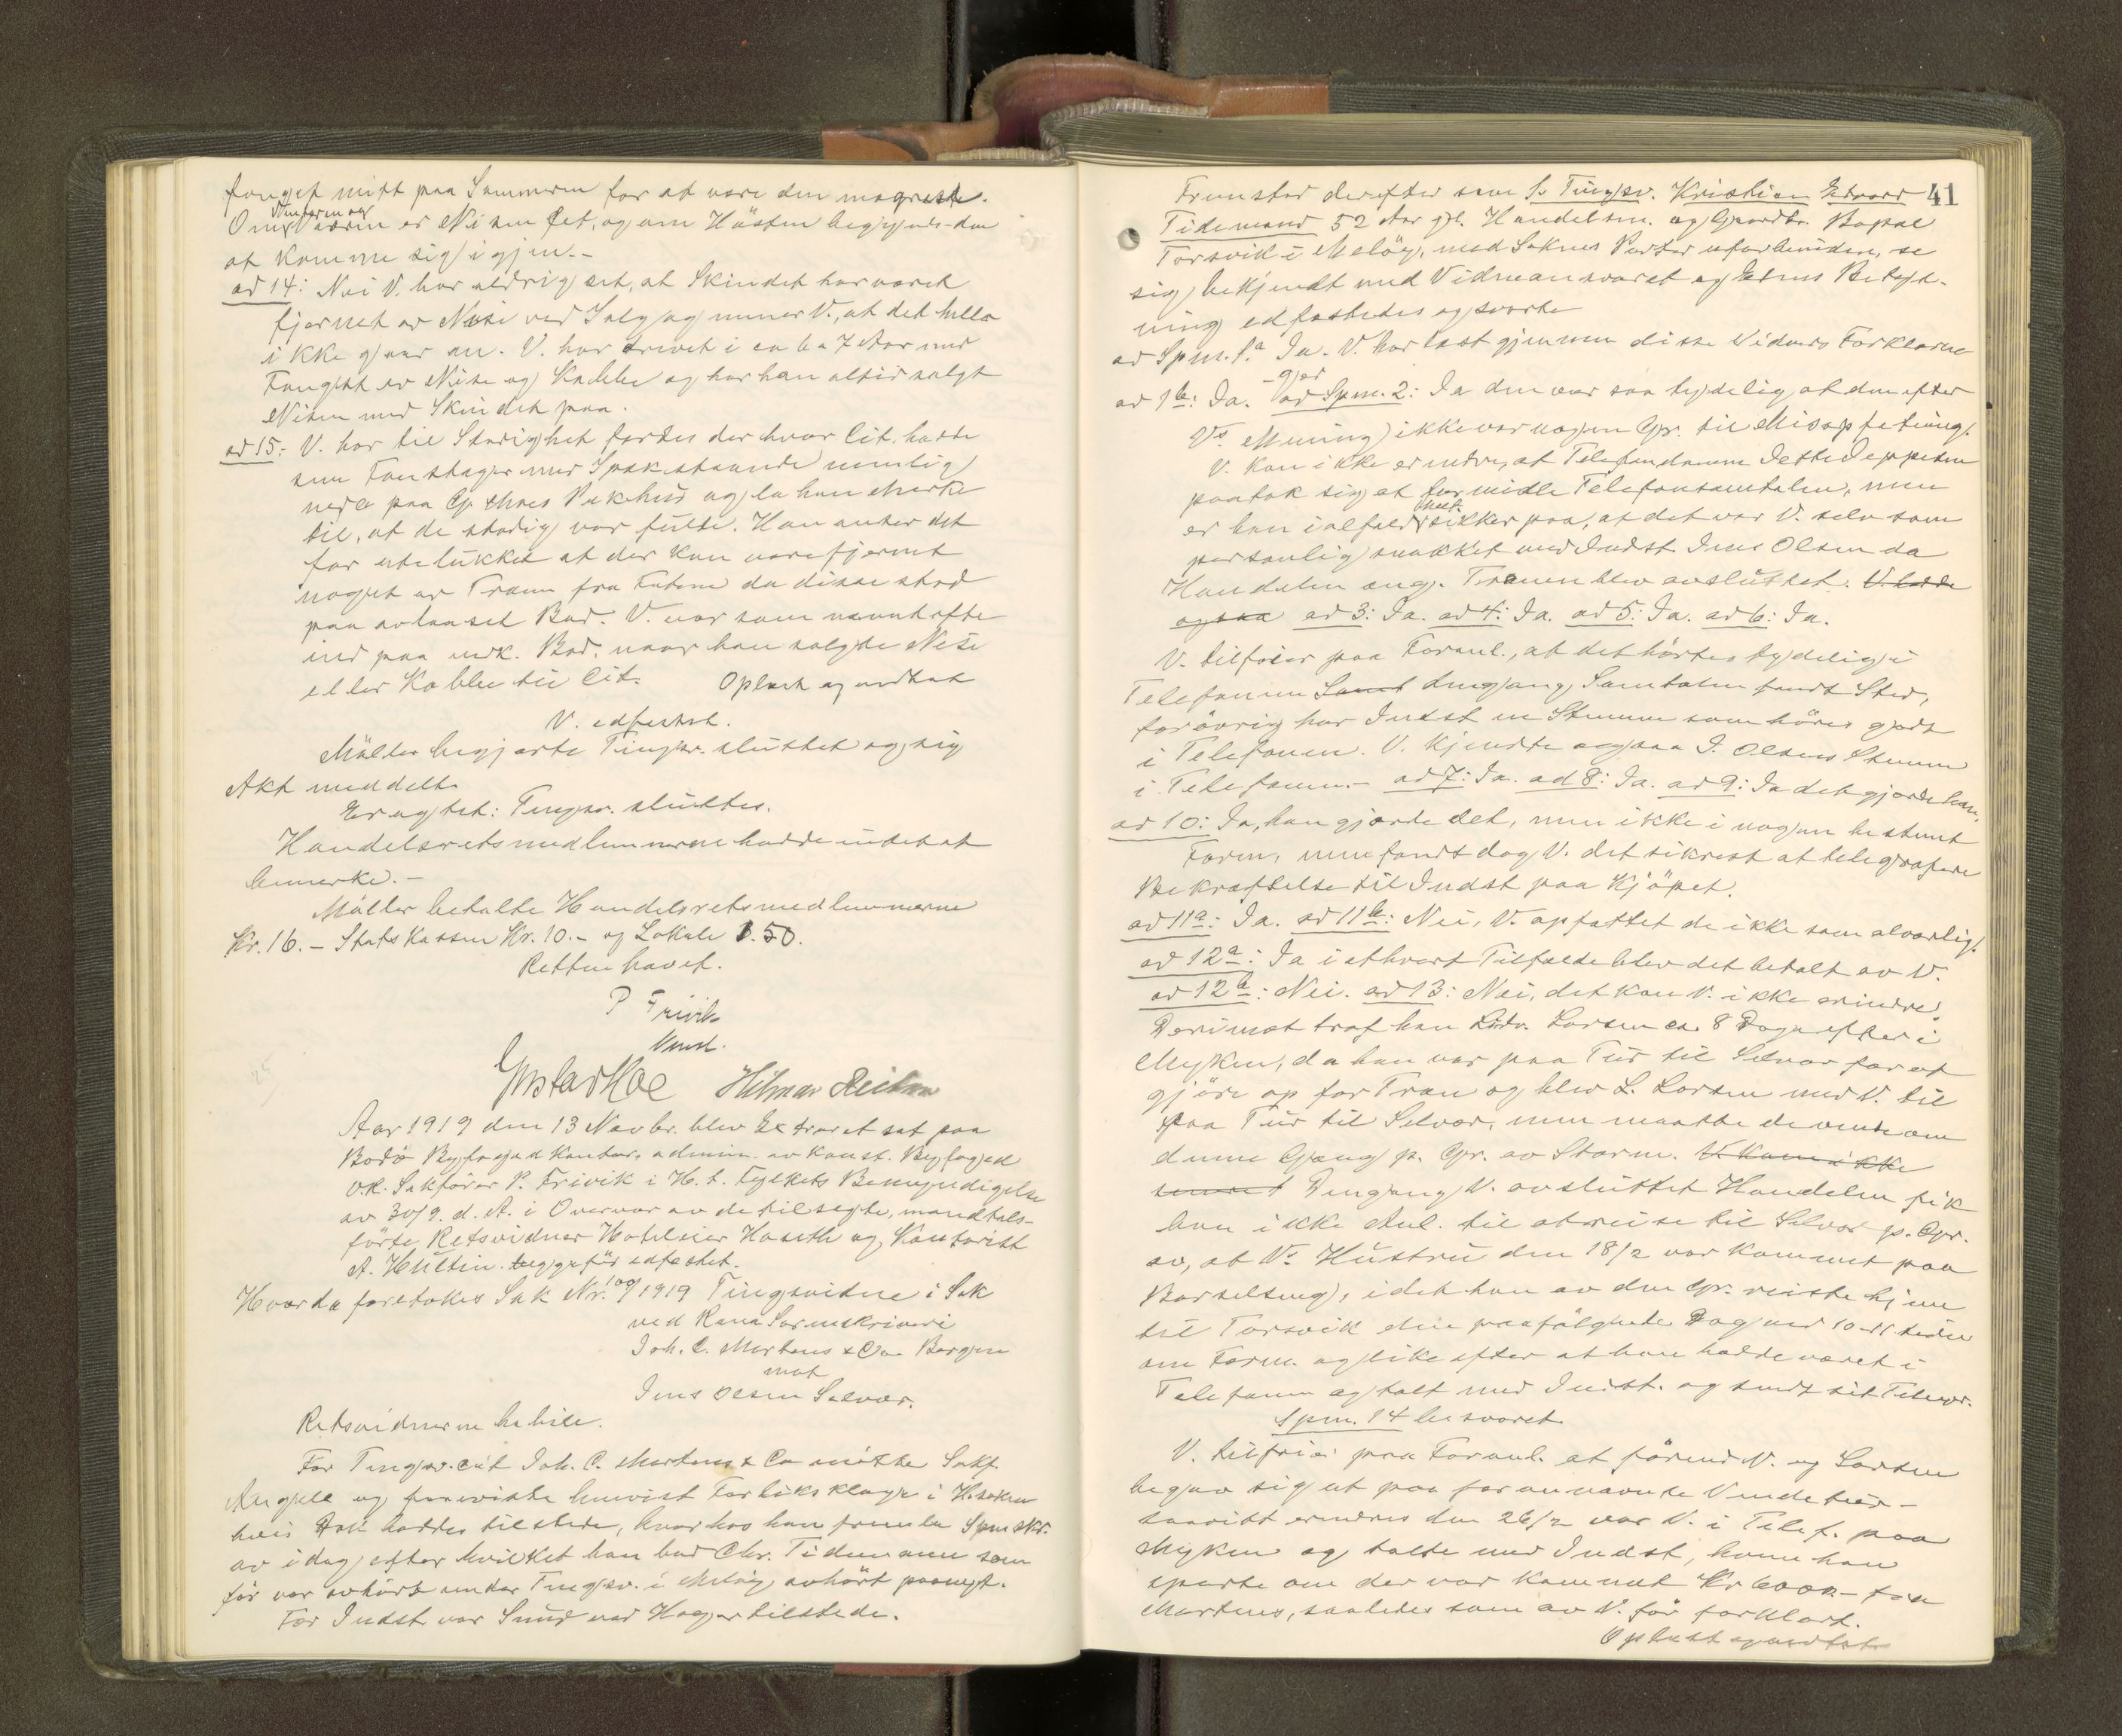 fanget midt paa Sommeren for at være den magreste.
Om Vinteren og Vaaren er Nisen fet, og om Høsten begynder den
at komme sig igjen.-
ad 14: Nei V. har aldrig set, at Skindet har været
fjernet av Nise ved Salg og mener V., at det heller
ikke gaar an. V. har drevet i ca 6 a 7 Aar med
Fangst av Nise og Kobbe og har han altid solgt
Nisen med Skindet paa.
ad 15: V. har til Stadighet færdes der hvor Cit. hadde
sine Fonstager med Spæk staaende nemlig
nede paa Pakhus og la han Merke
til, at de stadig var fulde. Han anser det
for utelukket at der kan være fjernet
noget av Tran fra Fatene da disse stod
paa avlaaset Bod. V. var som nævnt ofte
ind paa nævnte Bod, naar han solgte Nise
eller Kobbe til Cit. Oplæst og vedtat
V. edfæstet.
Møller begjærte Tingsv. sluttet og sig
Akt meddelt.
Eragtet: Tingsv. sluttes.
Handelsretsmedlemmerne hadde intet at
bemerke.-
Møller betalte Handelsretsmedlemmerne
Kr. 16.- Statskassen Kr. 10.- og Lokale 1.50.
Retten hævet.
P Frivik
Konst.
Gustav Moe Hilmar
Aar 1919 den 13 Novbr. blev Extraret sat paa
Bodø Byfogedkontor, admin. av konst. Byfoged
o.r. Sakfører P. Frivik i H. t. Fylkets Bemyndigelse
av 30/9. d. A. i Overvær av de tilsagte, mandtals-
førte Retsvidner Hotelleier Haseth og Kontorist
A. Hultin. begge før edfæstet.
Hvorda foretokes Sak Nr. 100/1919 Tingsvidne i Sak
ved Rana Sorenskriveri
Joh. C. Martens & Co Bergen
mot
Jens Olsen Selvær.
Retsvidnerne habile.
For Tingsv. cit Joh. C. Martens & Co møtte Sakf.
Angell og foreviste henvist Forliksklage i H.saken
hvis Akt haddes tilstede, hvorhos han fremla Spmskr.
av idag efter hvilket han bad Chr. Tidemann som
før var avhørt under Tingsv. i Meløy avhørt paanyt.
For Indst. var Smed ved Hager tilstede.
41
Fremstod derefter som 1. Tingsv. Kristian Edvard
Tidemand 52 Aar gl. Handelsm. og Gaardbr. Bopæl
Torsvik i Meløy, med Sakens Parter uforbunden, se
sig bekjendt med Vidneansvaret og Edens Betyd-
ning edfæstedes og svarte
ad Spm. 1.a Ja. V. har læst gjennem disse Vidners Forklarin-
-ger
ad 1b: Ja. ad Spm. 2: Ja den var saa tydelig, at den efter
Vs Mening ikke var nogen Gr. til Misopfatning.
V. kan ikke erindre, at Telefondamen
paatok sig at formidle Telefonsamtalen, men
er han ialfald helt sikker paa, at det var V. selv som
personlig snakket med Indst. Jens Olsen da
Handelen ang. Tranen blev avsluttet. V. hadde
ogsaa ad 3: Ja. ad 4: Ja. ad 5: Ja. ad 6: Ja.
V. tilføier paa Foranl., at det hørtes tydelig i
Telefonen Samt dengang Samtalen fandt Sted,
forøvrig har Indst en Stemme som høres godt
i Telefonen. V. kjendte ogsaa J. Olsens Stemme
i Telefonen.- ad 7: Ja. ad 8: Ja. ad 9: Ja det gjorde han.
ad 10: Ja, han gjorde det, men ikke i nogen bestemt
Form, men fandt dog V. det sikrest at telegrafere
Bekræftelse til Indst paa Kjøpet.
ad 11a: Ja. ad 11b: Nei, V. opfattet de ikke som alvorlig.
ad 12a: Ja i ethvert Tilfælde blev det betalt av V.
ad 12b: Nei. ad 13: Nei, det kan V. ikke erindre.
Derimot traf han Ludv. Larsen ca. 8 Dage efter i
Myken, da han var paa Tur til Selvær for at
gjøre op for Tran og blev L. Larsen med V. til
paa Tur til Selvær, men maatte de vende om
denne Gang p. Gr. av Storm. V. kom ikke
senere Dengang V. avsluttet Handelen fik
han ikke Anl. til at reise til Selvær p. Gr.
av, at Vs Hustru den 18/2 var kommet paa
Barselseng, idet han av den Gr. reiste hjem
til Torsvik den paafølgende Dag ved 10-11 tiden
om Form. og like efter at han hadde været i
Telefonen og talt med Indst. og sendt sit Telegr.
Spm. 14 besvaret.
V. tilføier paa Foranl. at førend V. og Larsen
begav sig ut paa forannævnte Vendetur-
saavidt erindres den 26/2 var V. i Telef. paa
Myken og talte med Indst, hvem han
spurte om der var kommet Kr 6000.- fra
Martens, saaledes som av V. før forklart.
Oplæst og vedtat